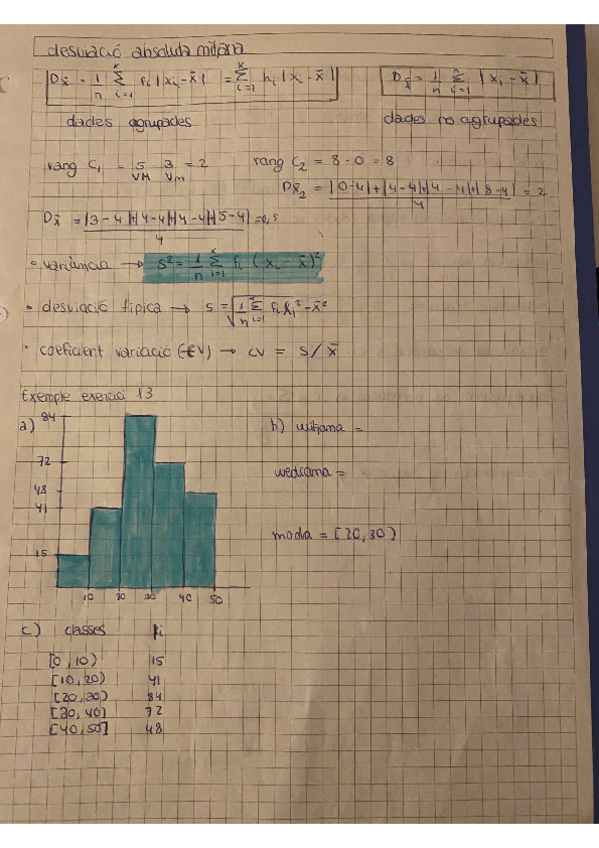 desviació absoluta mitjana
Dx̄ = 1/n Σ(i=1, K) fi |xi - x̄| = Σ(i=1, K) hi |xi - x̄|
Dx̄ = 1/n Σ(i=1, n) |xi - x̄|
dades agrupades
dades no agrupades
rang C1 = 5 - 3 = 2
VM Vm
rang C2 = 8 - 0 = 8
Dx̄2 = |0-4|+|4-4|+|4-4|+|8-4| / 4 = 2
Dx̄ = |3-4|+|4-4|+|4-4|+|5-4| / 4 = 0,5
• variància → s² = 1/n Σ(i=1, K) fi (xi - x̄)²
• desviació típica → s = √(1/n Σ(i=1) fi xi² - x̄²)
• coeficient variació (CV) → CV = s/x̄
Exemple exercici 13
a)
84
72
48
41
15
10 20 30 40 50
b) mitjana =
mediana =
moda = [20, 30)
c) classes fi
[0, 10) 15
[10, 20) 41
[20, 30) 84
[30, 40) 72
[40, 50] 48